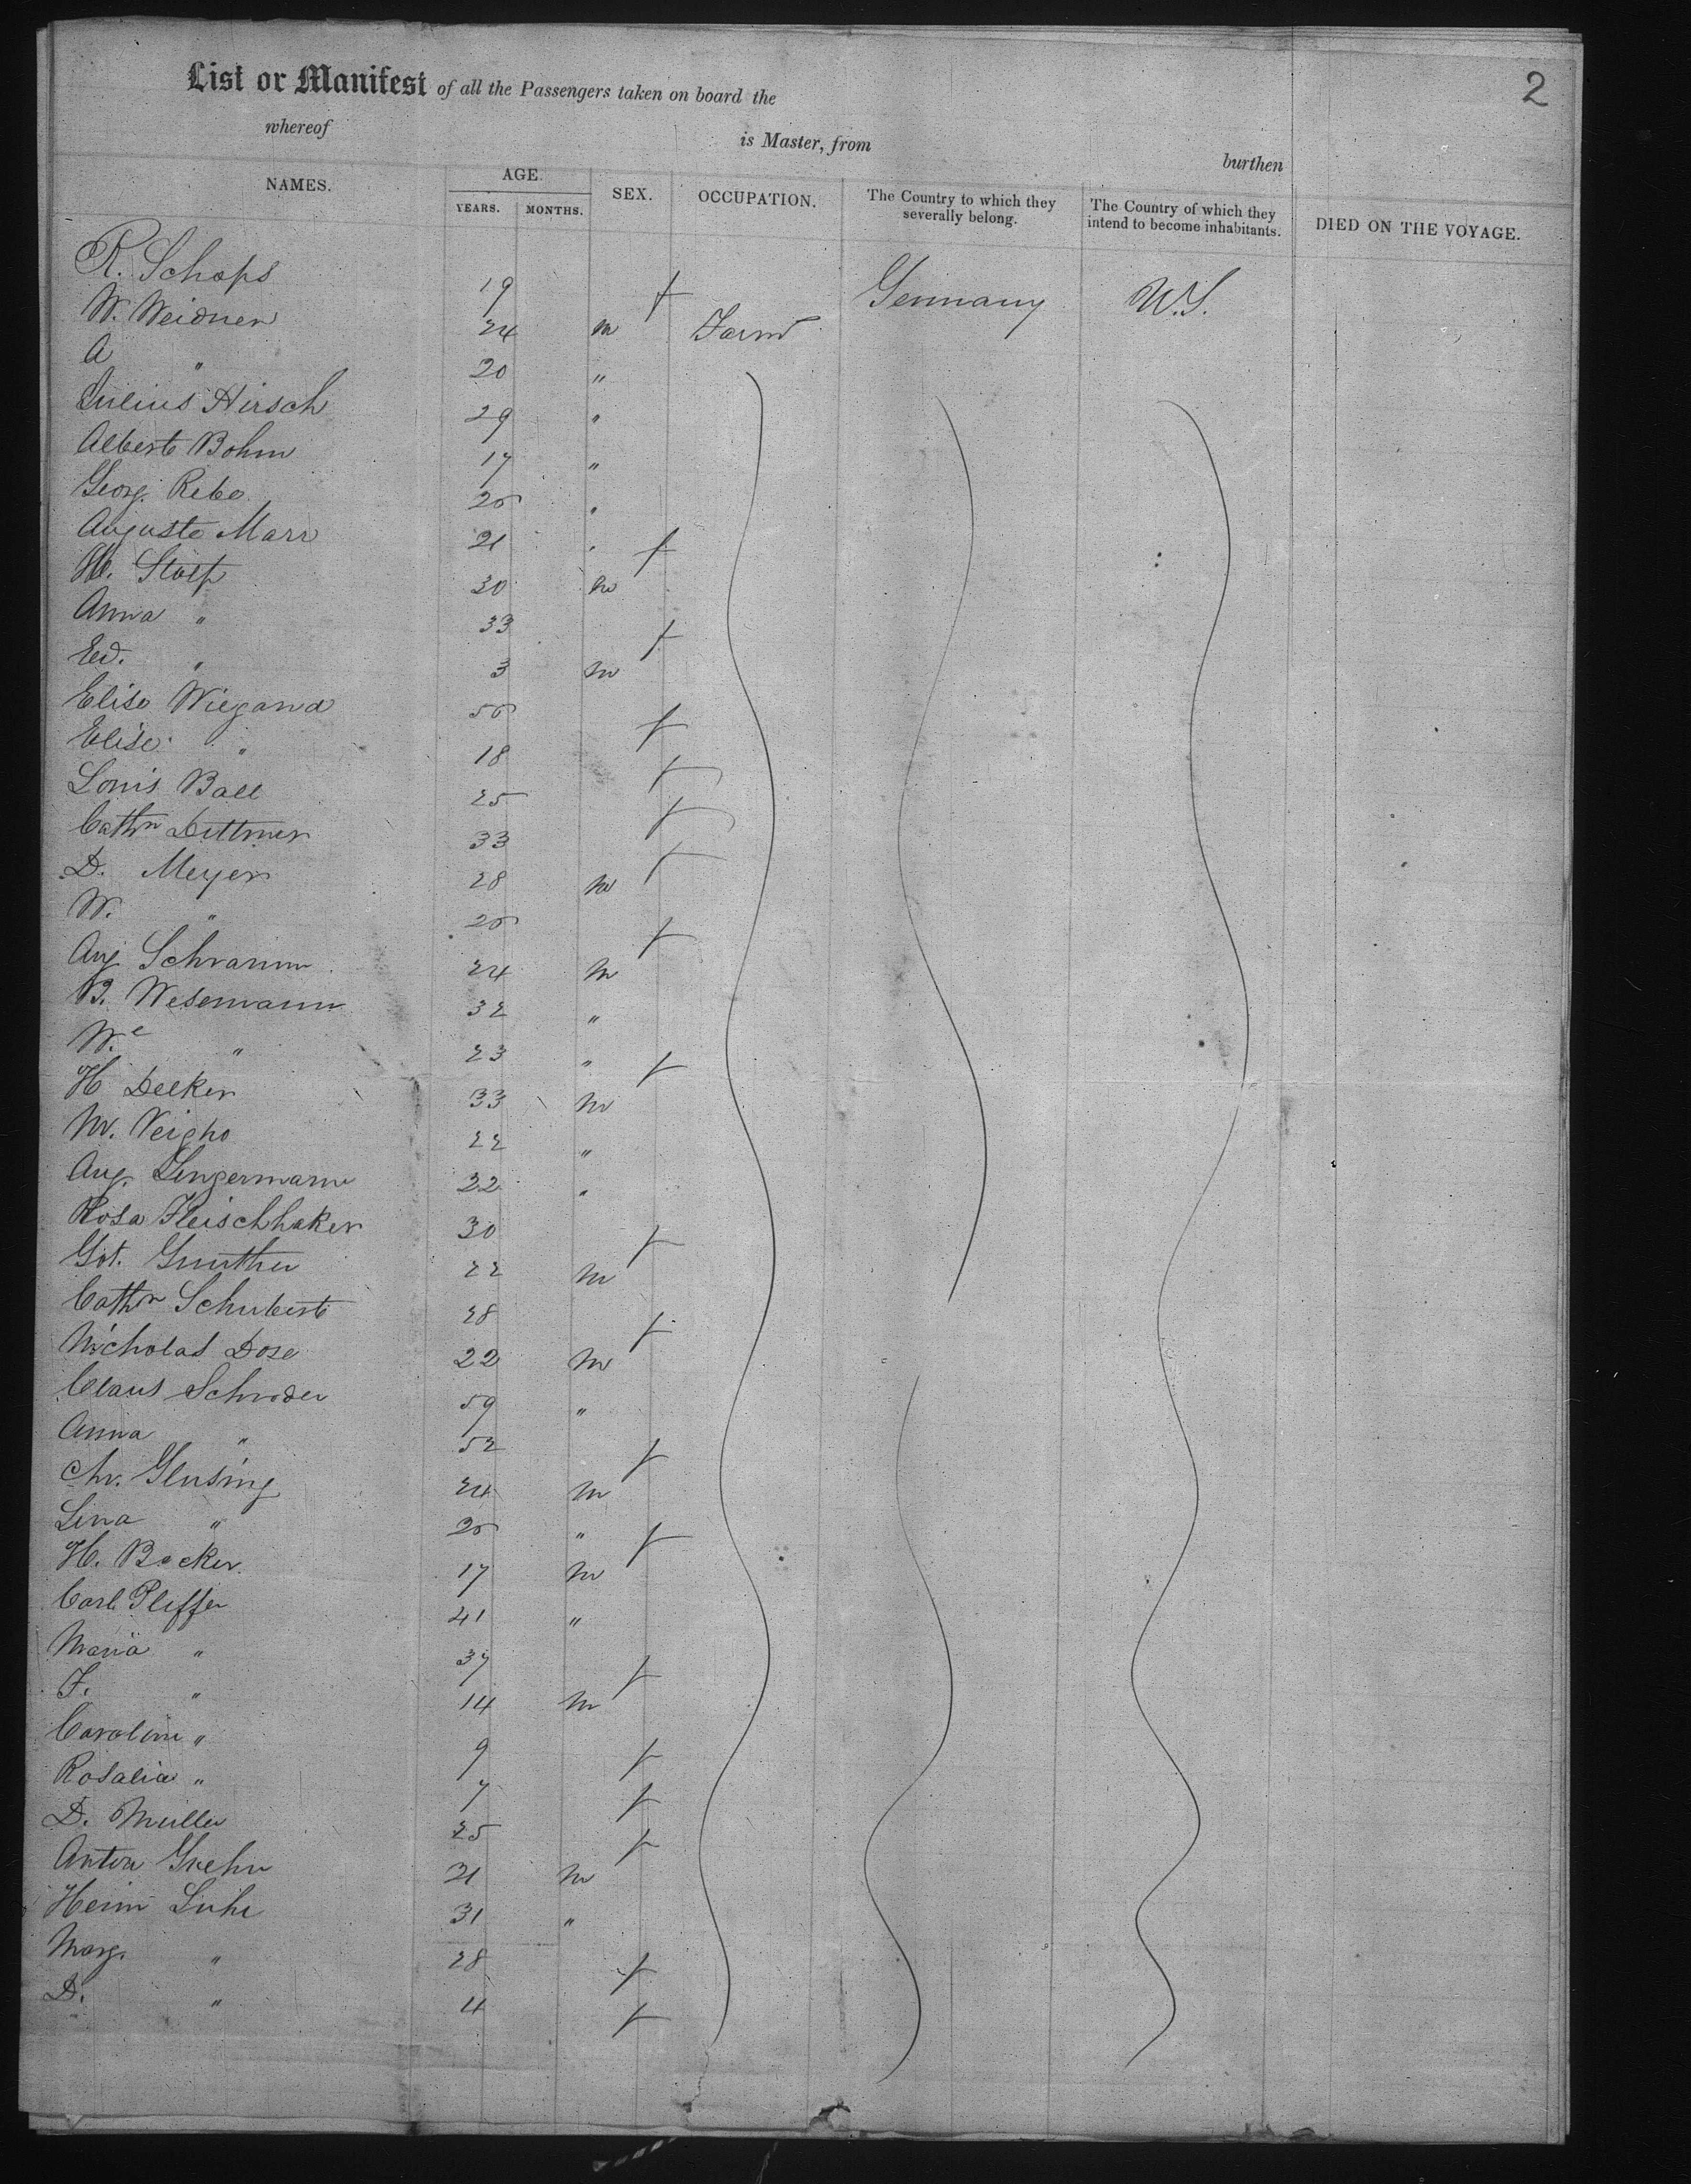 2
List or Manifest of all the Passengers taken on board the
whereof is Master, from burthen
NAMES. AGE. SEX. OCCUPATION. The Country to which they severally belong. The Country of which they intend to become inhabitants. DIED ON THE VOYAGE.
YEARS. MONTHS.
R. Schops 19 f Germany U.S.
W. Weidner 24 m Farmr
A " 20 "
Julius Hirsch 29 "
Albert Bohm 17 "
Georg. Rebe 25 "
Auguste Marr 21 " f
H. Stolp 30 m
Anna " 33 f
Ed. " 3 m
Elise Wiegand 55 f
Elise " 18 f
Louis Ball 25 f
Cathn Dittmer 33 f
D. Meyer 28 m
W. " 25 f
Aug Schramm 24 m
B. Wesemann 32 "
W.e " 23 " f
H Decker 33 m
W. Veigho 22 "
Aug. Lingermann 22 "
Rosa Fleischhaker 30 f
Got. Gunther 22 m
Cathn Schubert 28 f
Nicholas Dose 22 m
Claus Schroder 59 "
Anna " 52 f
Chr. Glusing 24 m
Lina " 25 " f
H. Becker 17 m
Carl Pfeffer 41 "
Maria " 37 f
F. " 14 m
Caroline " 9 f
Rosalia " 7 f
D. Muller 25 f
Anton Grehn 21 m
Heinr Luhr 31 "
Marg. " 28 f
D. " 4 f